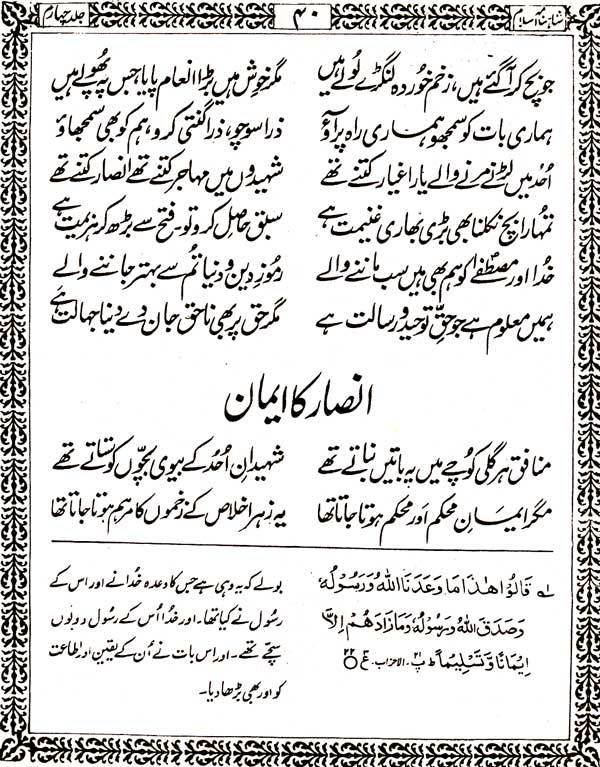 شاہنامہ اسلام ۴۰ جلد چہارم
جو بچ کر آ گئے ہیں، زخم خوردہ لنگڑے لُولے ہیں مگر خوش ہیں بڑا انعام پایا جس پہ پھُولے ہیں
ہماری بات کو سمجھو ہماری راہ پر آؤ ذرا سوچو، ذرا گنتی کرو، ہم کو بھی سمجھاؤ
اُحد میں لڑنے مرنے والے یار اغیار کتنے تھے شہیدوں میں مہاجر کتنے تھے انصار کتنے تھے
تمہارا بچ نکلنا بھی بڑی بھاری غنیمت ہے سبق حاصل کرو تو۔ فتح سے بڑھ کر ہزیمت ہے
خدا اور مصطفیٰؐ کو ہم بھی ہیں سب ماننے والے رموزِ دین و دنیا تم سے بہتر جاننے والے
ہمیں معلوم ہے جو حقِّ توحید و رسالت ہے مگر حق پر بھی ناحق جان دے دینا جہالت ہے
انصار کا ایمان
منافق ہر گلی کوچے میں یہ باتیں بناتے تھے شہیدانِ اُحد کے بیوی بچّوں کو ستاتے تھے
مگر ایمان محکم اور محکم ہوتا جاتا تھا یہ زہر اخلاص کے زخموں کا مرہم ہوتا جاتا تھا
لے قَالُوْا هٰذَا مَا وَعَدَنَا اللّٰهُ وَرَسُوْلُهٗ
وَصَدَقَ اللّٰهُ وَرَسُوْلُهٗ وَمَا زَادَهُمْ اِلَّآ
اِيْمَانًا وَّتَسْلِيْمًا ط پ۲۱۔ الاحزاب۔ ع ۲۲
بولے کہ یہ وہی ہے جس کا وعدہ خدا نے اور اس کے
رسُول نے کیا تھا۔ اور خدا اُس کے رسُول دونوں
سچّے تھے۔ اور اس بات نے اُن کے یقین اور اطاعت
کو اور بھی بڑھا دیا۔